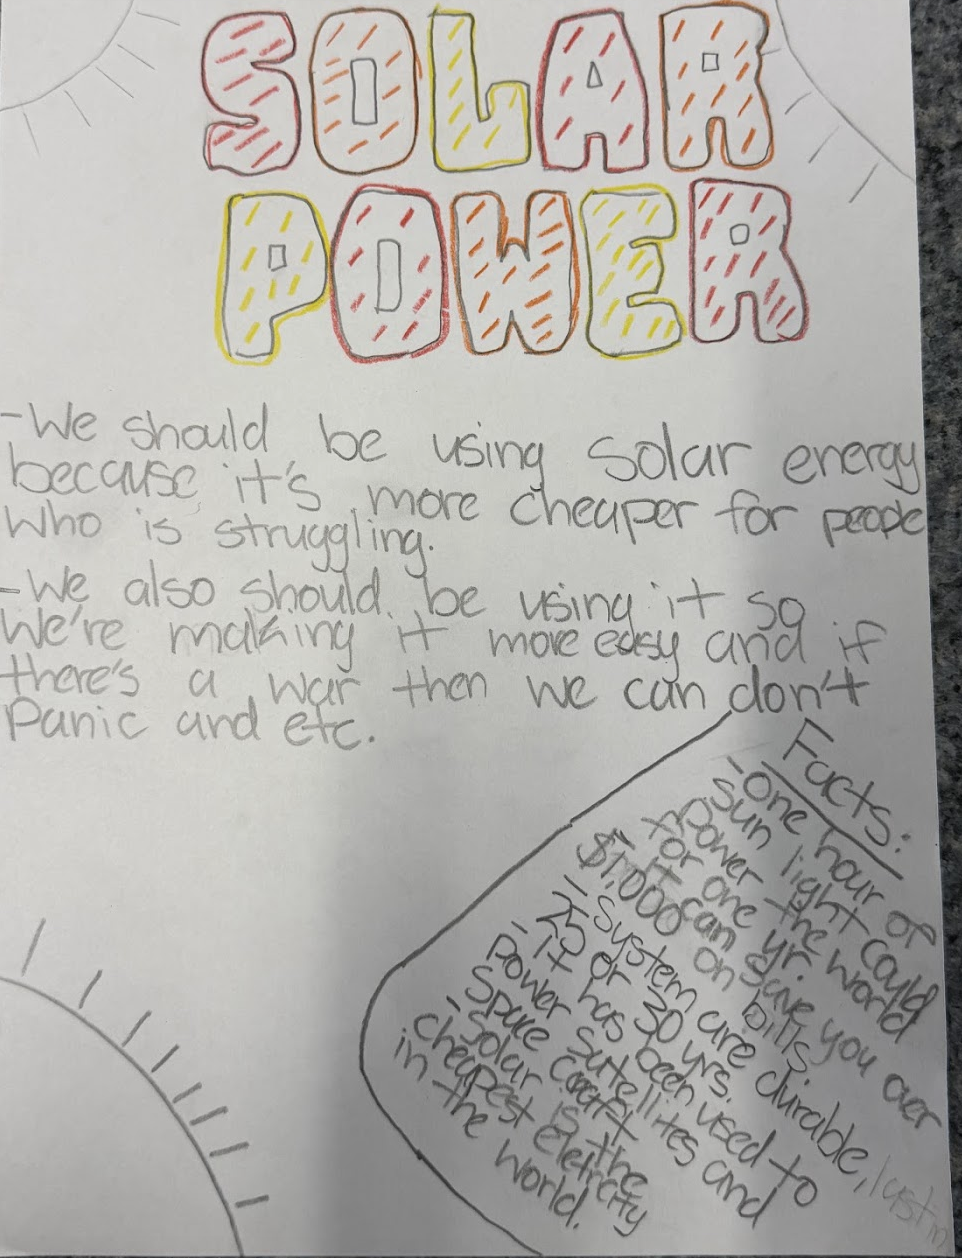 SOLAR
POWER
-We should be using Solar energy
because it's more cheaper for people
who is struggling.
-We also should be using it so
We're making it more easy and if
there's a war then we can don't
Panic and etc.
Facts:
-One hour of
sun light could
power the world
for one yr.
- it can save you over
$1,000 on bills.
- System are durable, lastin
25 or 30 yrs.
- it has been used to
power satellites and
space craft
-Solar is the
cheapest eletricity
in the world.